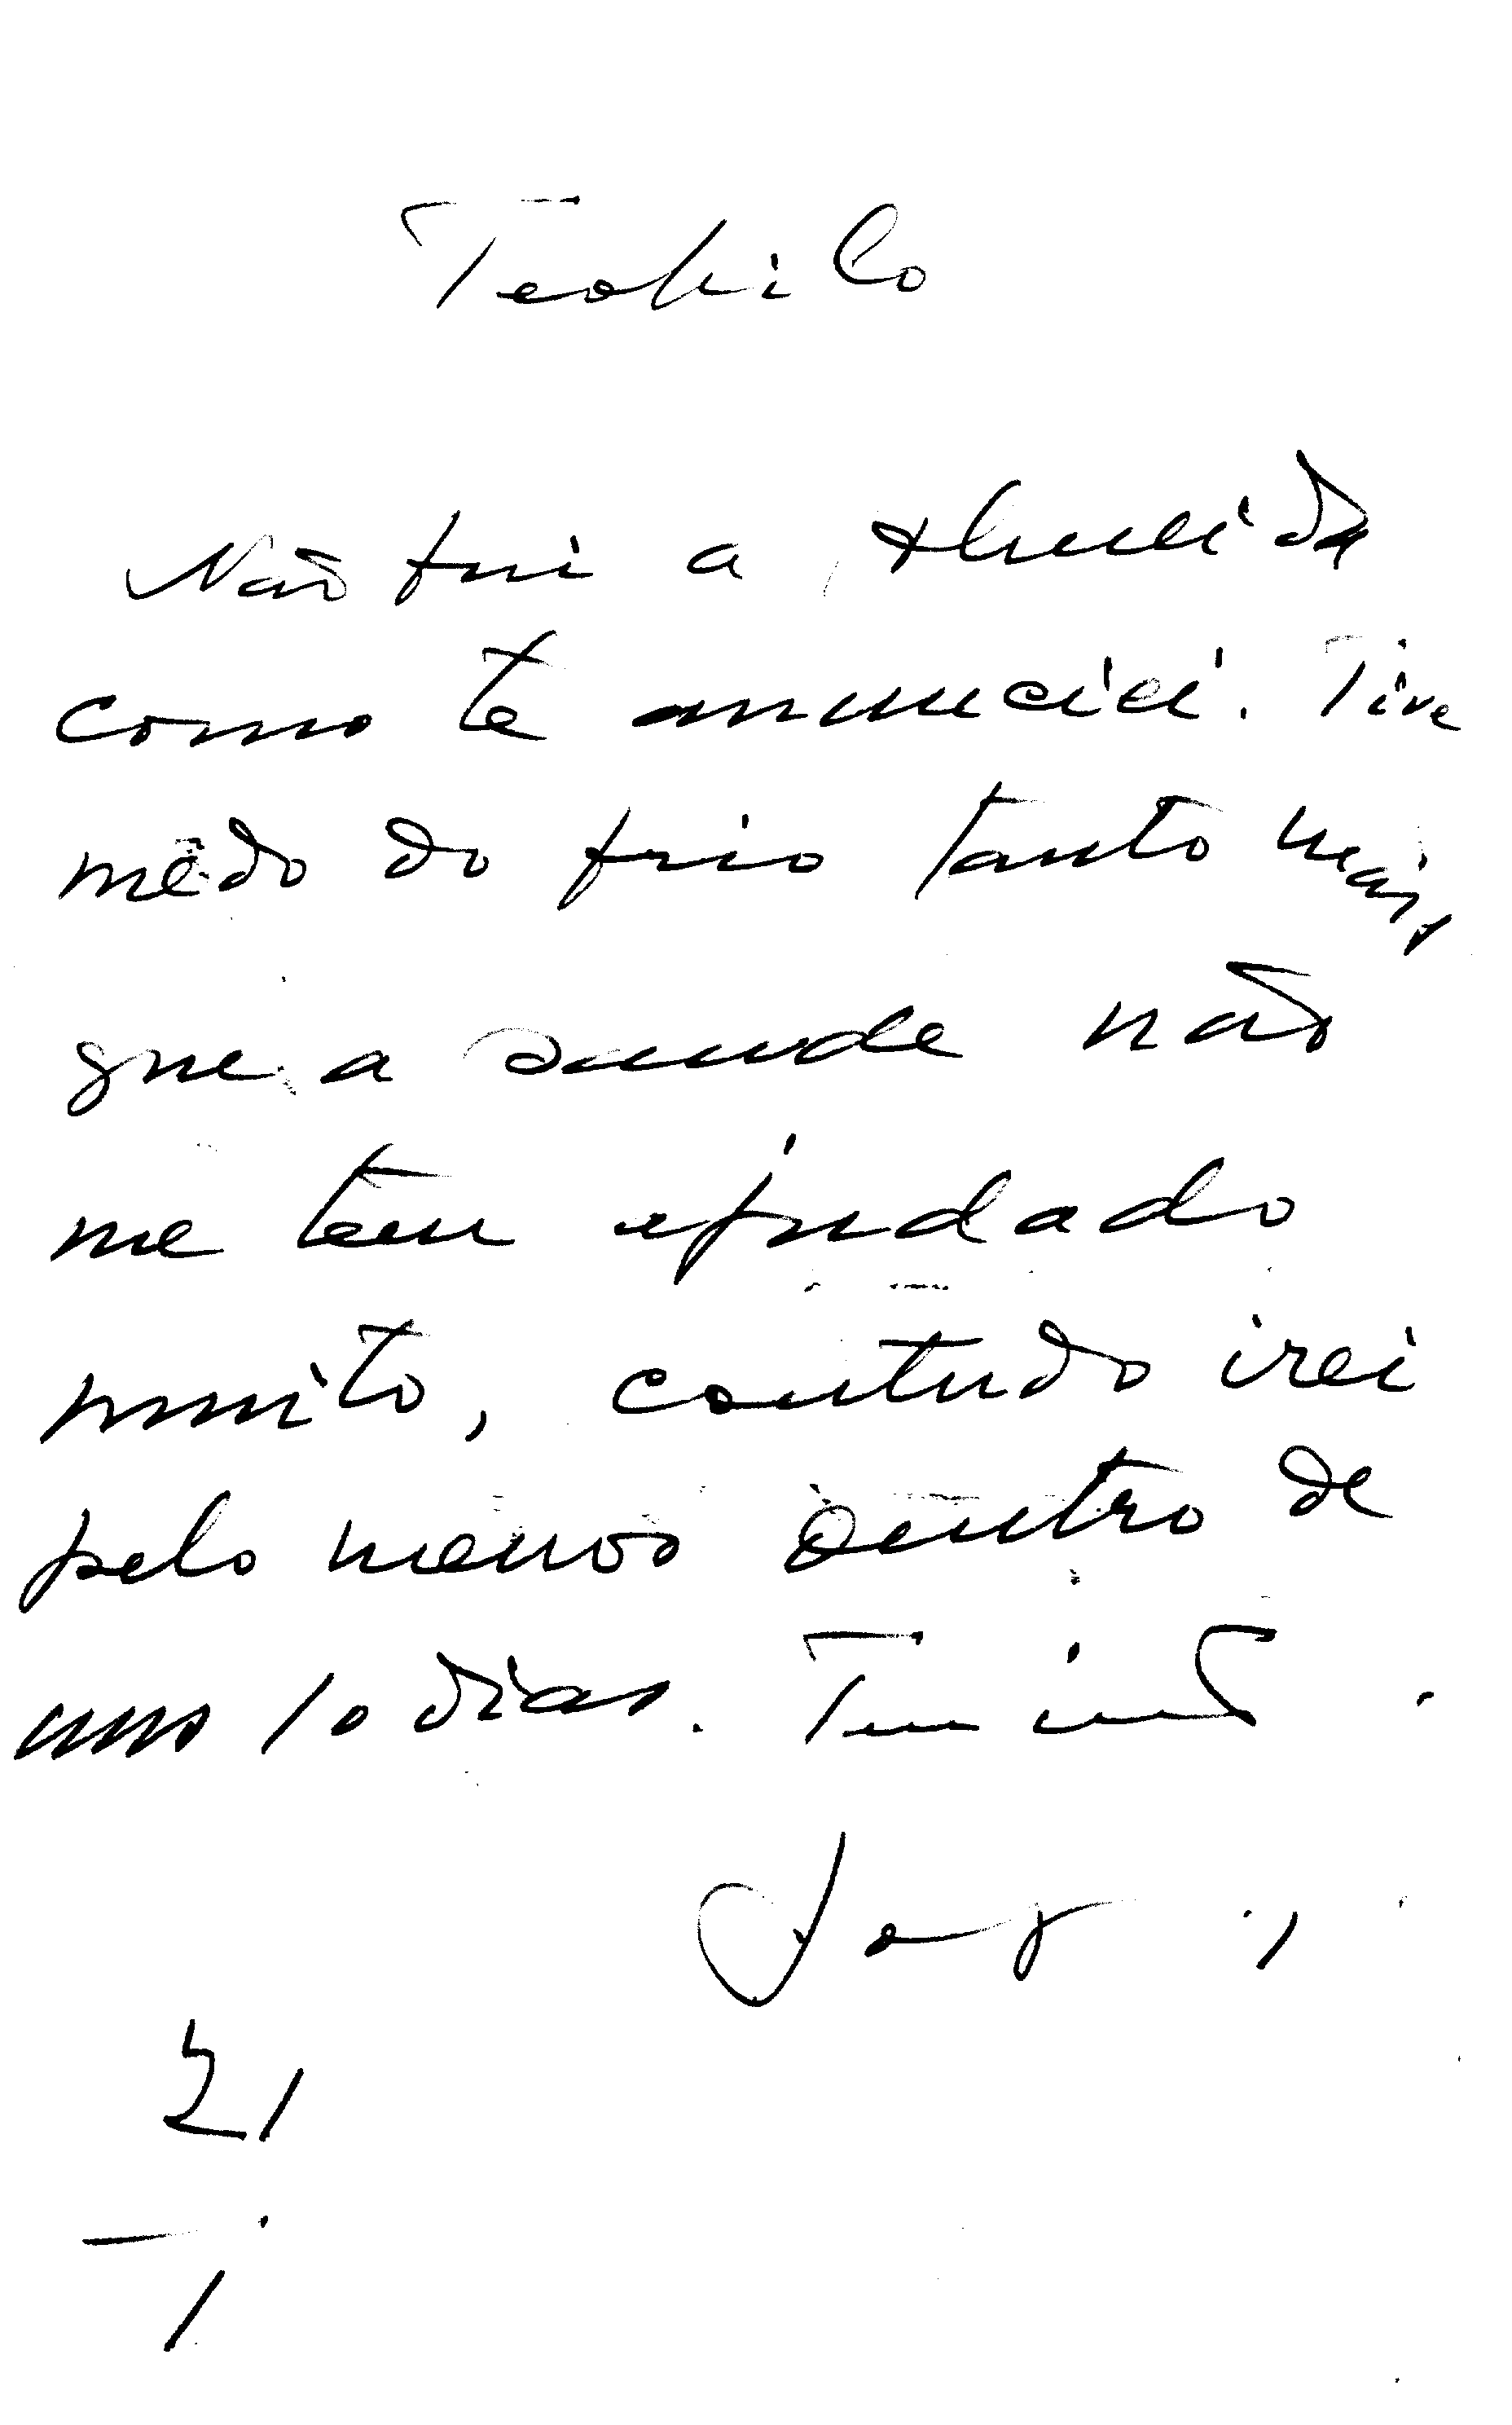 Teofilo
Não fui a Almeida
como te anunciei. Tive
mêdo do frio tanto mais
que a saude não
me tem ajudado
muito, contudo irei
pelo menos dentro de
uns 10 dias. Teu
21
1